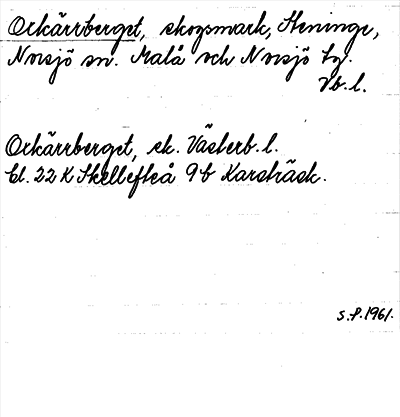 Orkärrberget, skogsmark, Heninge,
Norsjö sn. Malå och Norsjö tg.
Vb. l.
Orkärrberget, sk. Västerb. l.
bl. 22 K Skellefteå 9b Karsträsk.
S.P. 1961.